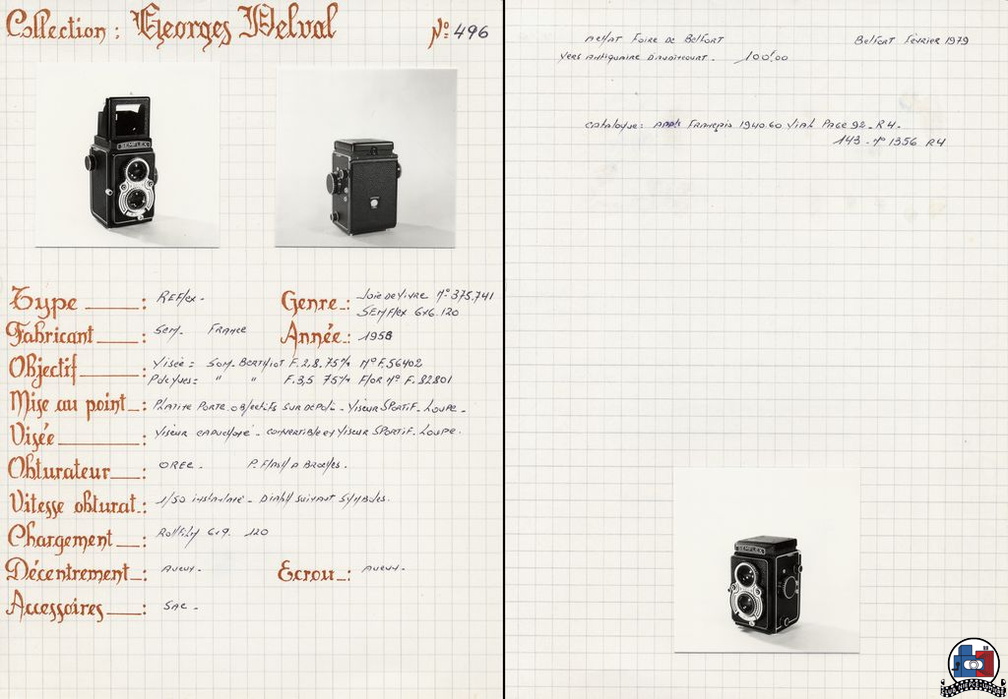 Collection : Georges Delval
N° 496
Type : REFlex -
Genre : Joie de vivre N° 375.741
SEMFlex 6x6. 120
Fabricant : Sem. France
Année : 1958
Objectif : Visée : SOM. BERTHIOT F. 2,8. 75 N° F.56402
" " F.3,5 75 FlOR N° F. 82801
Mise au point : PLATINE PORTE. OBJECTIFS SUR DEPOLI - VISEUR SPORTIF. LOUPE -
Visée : VISEUR CAPUCHONÉ - CONVERTIBLE EN VISEUR SPORTIF. LOUPE.
Obturateur : OREC. P. FLASH A BROCHES.
Vitesse obturat. : 1/50 instantané - DIAPH SUIVANT SYMBOLES.
Chargement : Rollfilm 6x9. 120
Décentrement : AUCUN -
Ecrou : AUCUN -
Accessoires : SAC -
SEMFLEX
Achat Foire de Belfort
Belfort Février 1979
Vers Antiquaire D'AUDINCOURT - 100,00
Catalogue : Français 1940.60 Vial Page 92 - R4 -
143 - N° 1356 R4
SEMFLEX